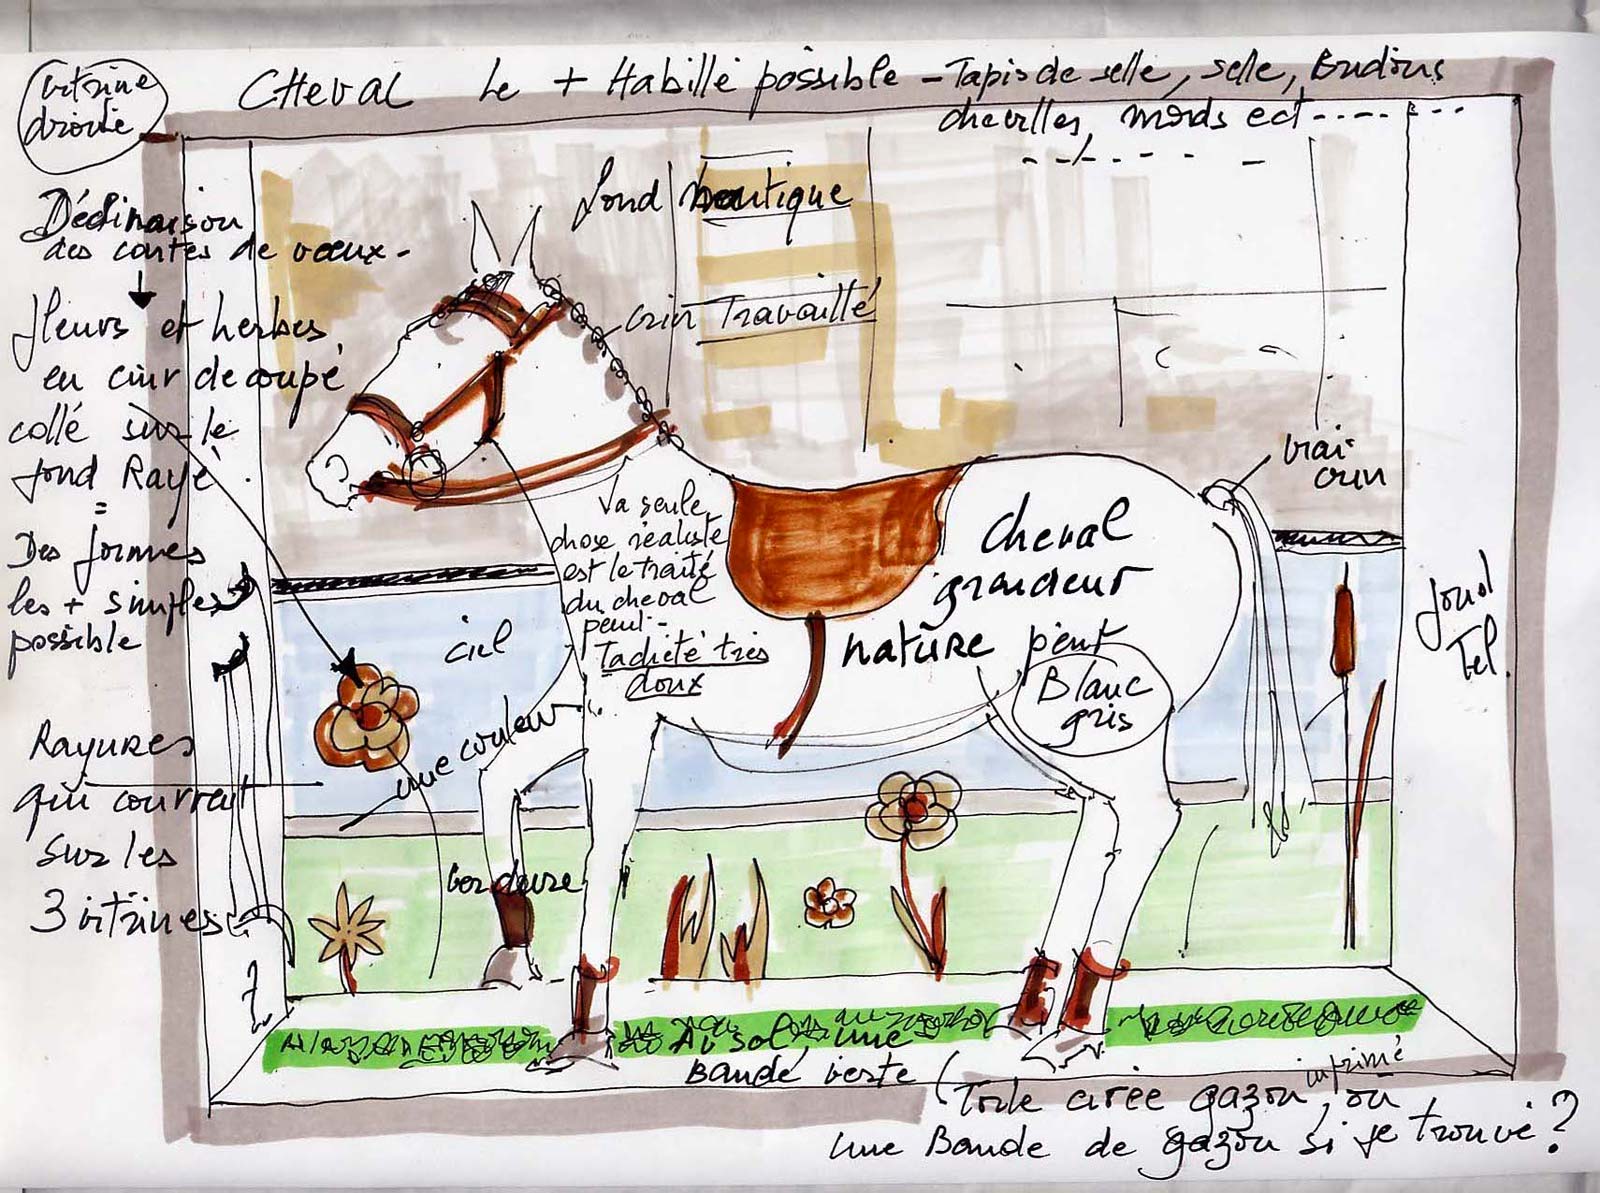 vitrine
droite
CHEVAL le + Habillé possible - Tapis de selle, selle, Bridons
chevilles, mords ect
Déclinaison
des cartes de vœux -
fleurs et herbes
en cuir découpé
collé sur le
fond Rayé
=
Des formes
les + simples
possible
Rayures
qui courrent
sur les
3 vitrines
fond boutique
crin Travaillé
vrai
crin
La seule
chose réaliste
est le traité
du cheval
peint -
Tacheté très
doux
cheval
grandeur
nature peint
Blanc
gris
ciel
une couleur
verdure
fond
Tel.
Au sol, une
Bande verte
(Toile cirée gazon imprimé, ou
une Bande de gazon si je trouve ?